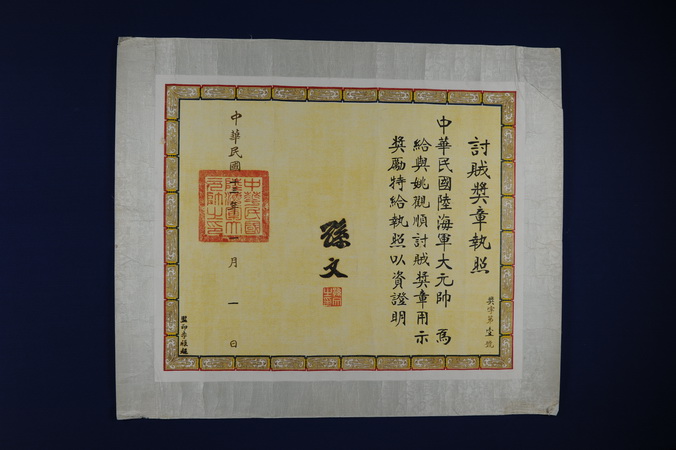 討賊獎章執照
獎字第壹號
中華民國陸海軍大元帥 為
給與姚觀順討賊獎章用示
獎勵特給執照以資證明
孫文
中華民國十三年一月一日
中華民國陸海軍大元帥之印